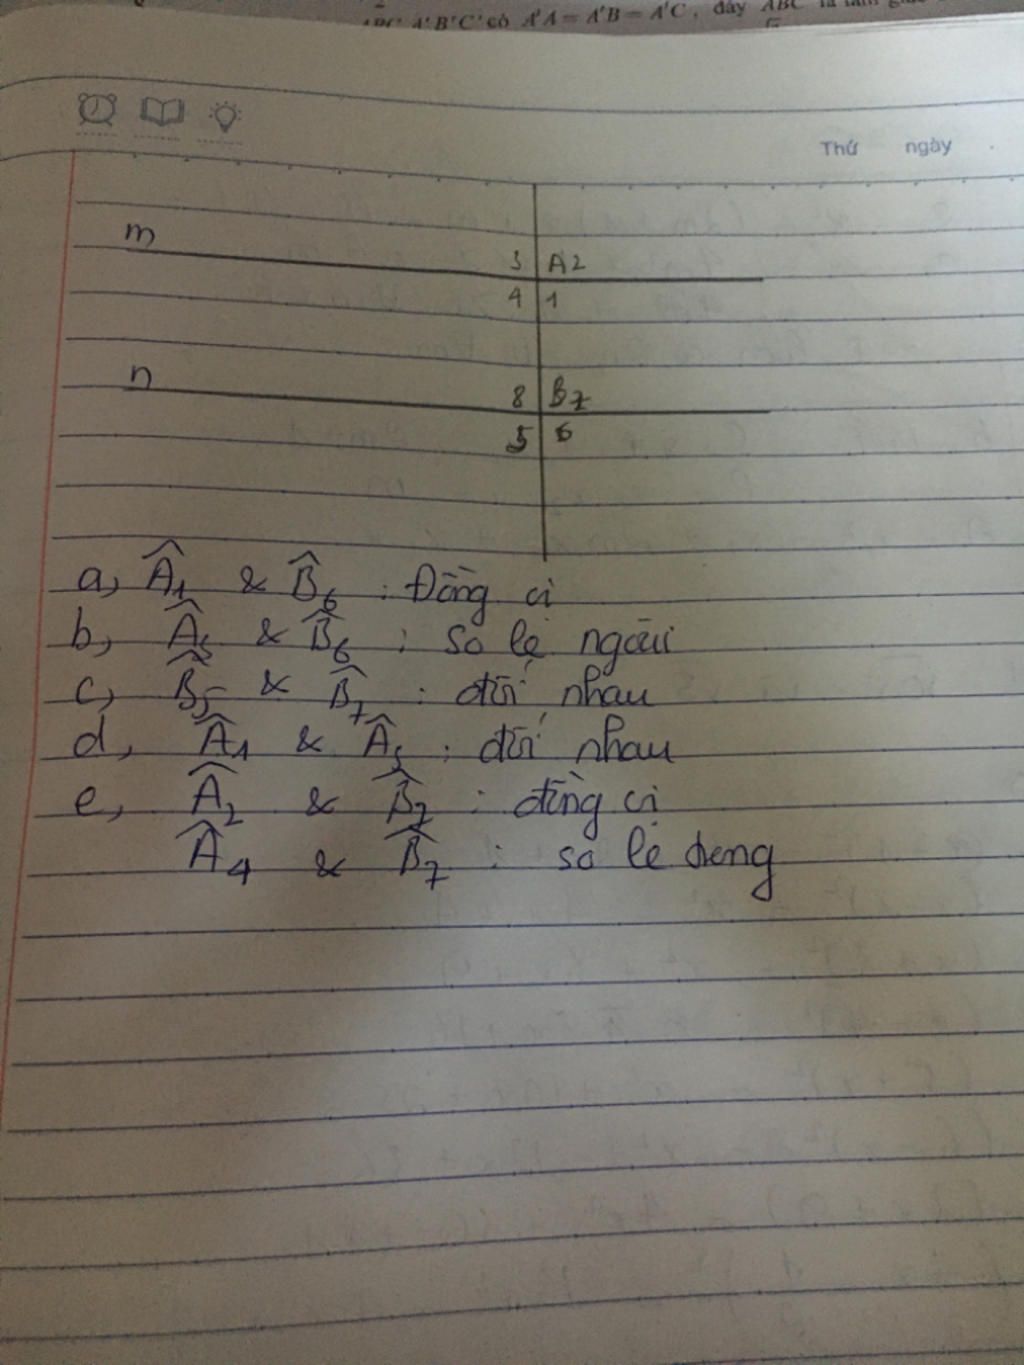 A'B'C' có A'A = A'B = A'C, đáy ABC là tam
Thứ ngày
m
3 A 2
4 1
n
8 B 7
5 6
a, Â1 & B̂6 : Đồng vị
b, Â3 & B̂6 : so le ngoài
c, B̂5 & B̂7 : đối nhau
d, Â1 & Â3 : đối nhau
e, Â2 & B̂7 : đồng vị
Â4 & B̂7 : so le trong